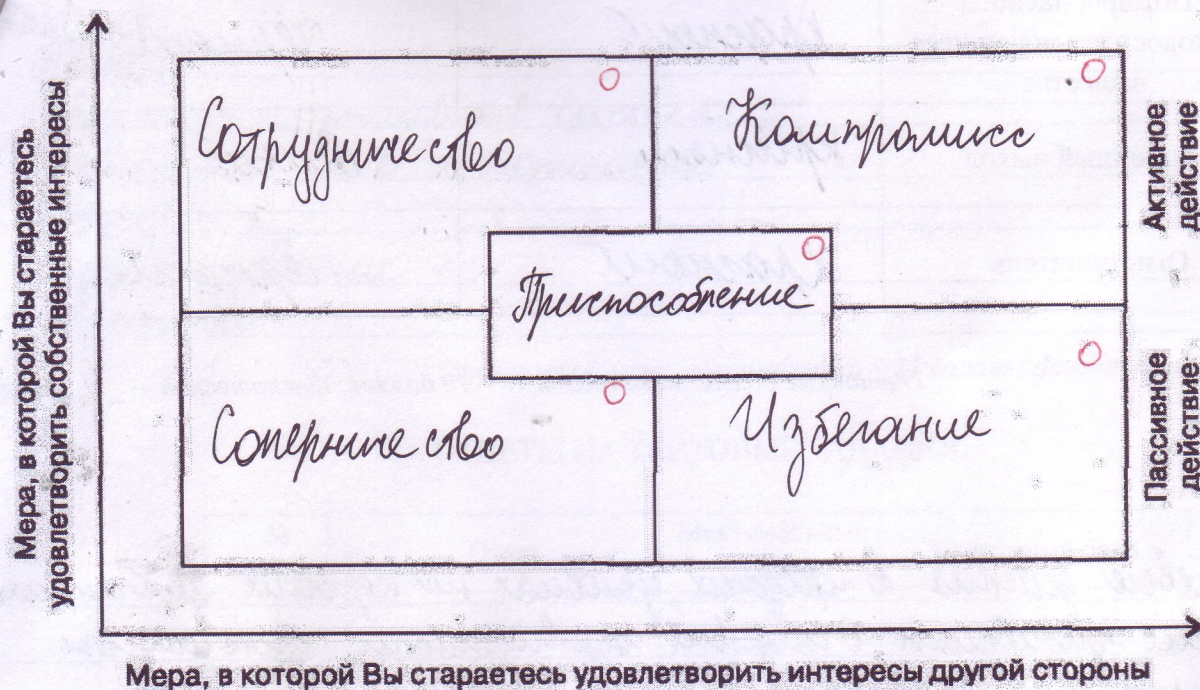 Мера, в которой Вы стараетесь
удовлетворить собственные интересы
Сотрудничество
Компромисс
Активное
действие
Приспособление
Соперничество
Избегание
Пассивное
действие
Мера, в которой Вы стараетесь удовлетворить интересы другой стороны